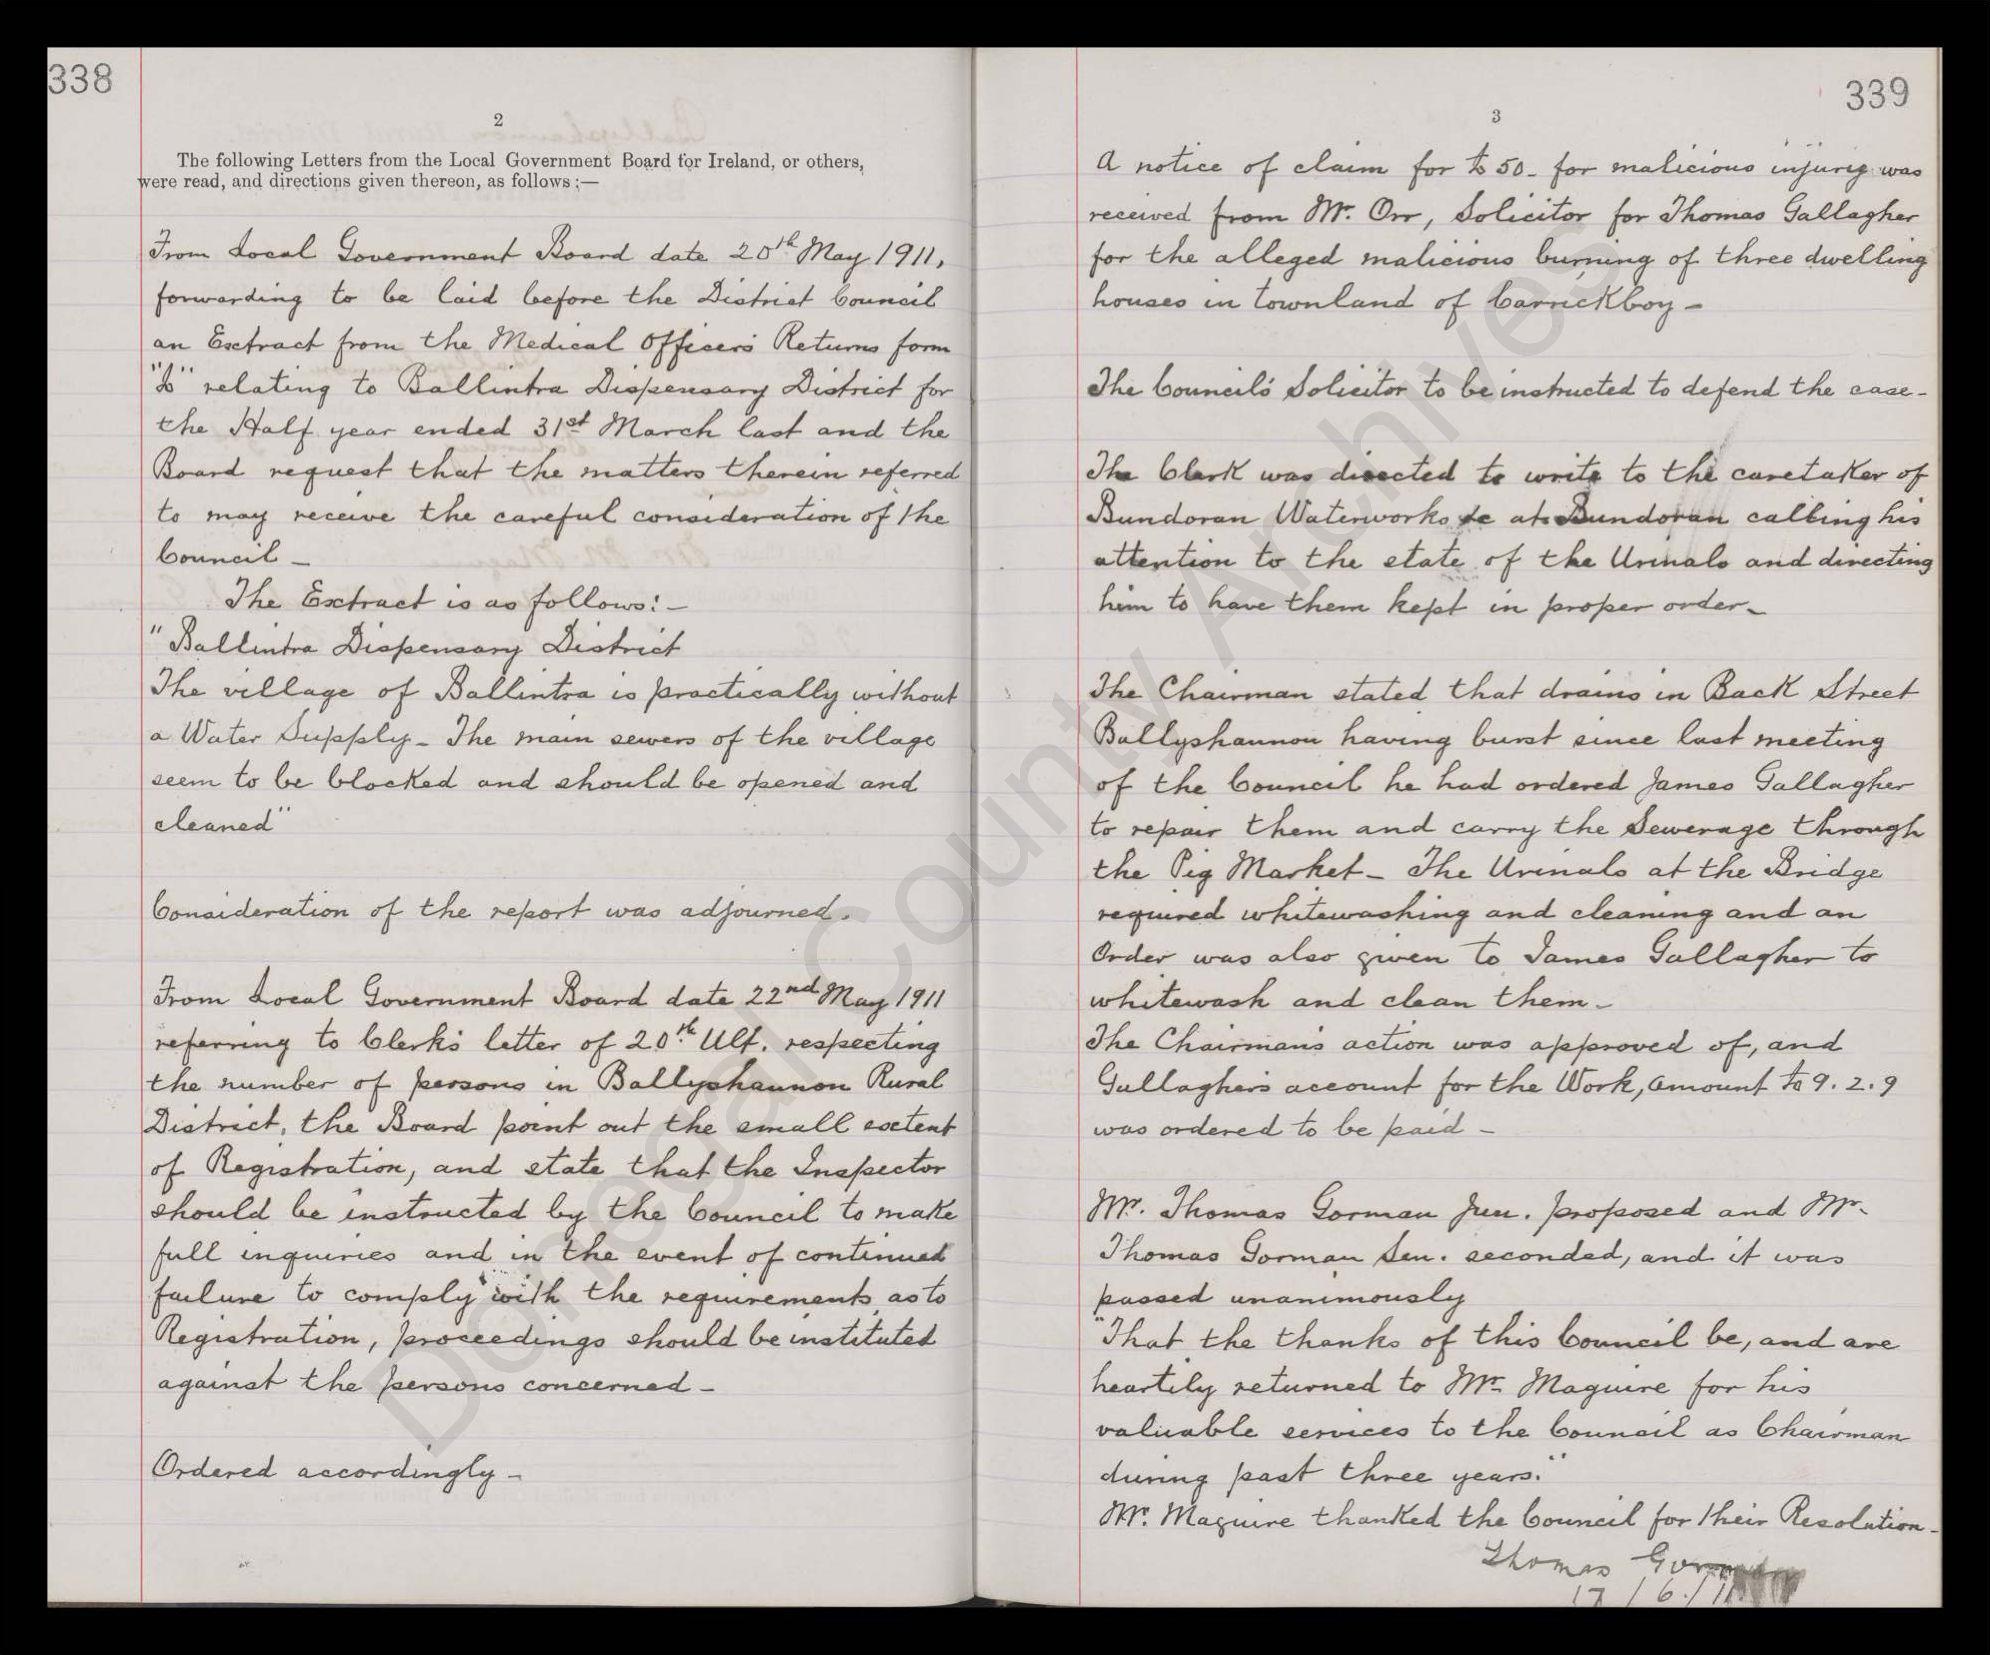 338
2
The following Letters from the Local Government Board for Ireland, or others,
were read, and directions given thereon, as follows:—
From Local Government Board date 20th May 1911,
forwarding to be laid before the District Council
an Extract from the Medical Officers Returns form
relating to Ballintra Dispensary District for
the Half year ended 31st March last and the
Board request that the matters therein referred
to may receive the careful consideration of the
Council —
The Extract is as follows:—
"Ballintra Dispensary District
The village of Ballintra is practically without
a Water Supply — The main sewers of the village
seem to be blocked and should be opened and
cleaned"
Consideration of the report was adjourned.
From Local Government Board date 22nd May 1911
referring to Clerk's letter of 20th Ult. respecting
the number of persons in Ballyshannon Rural
District, the Board point out the small extent
of Registration, and state that the Inspector
should be instructed by the Council to make
full inquiries and in the event of continued
failure to comply with the requirements as to
Registration, proceedings should be instituted
against the persons concerned —
Ordered accordingly —
339
3
A notice of claim for £50 - for malicious injury was
received from Mr. Orr, Solicitor for Thomas Gallagher
for the alleged malicious burning of three dwelling
houses in townland of Carrickboy —
The Council's Solicitor to be instructed to defend the case —
The Clerk was directed to write to the caretaker of
Bundoran Waterworks at Bundoran calling his
attention to the state of the Urinals and directing
him to have them kept in proper order —
The Chairman stated that drains in Back Street
Ballyshannon having burst since last meeting
of the Council he had ordered James Gallagher
to repair them and carry the Sewerage through
the Pig Market — The Urinals at the Bridge
required whitewashing and cleaning and an
Order was also given to James Gallagher to
whitewash and clean them —
The Chairman's action was approved of, and
Gallagher's account for the Work, amount £9. 2. 9
was ordered to be paid —
Mr. Thomas Gorman Jun. proposed and Mr.
Thomas Gorman Sen. seconded, and it was
passed unanimously
"That the thanks of this Council be, and are
heartily returned to Mr Maguire for his
valuable services to the Council as Chairman
during past three years."
Mr. Maguire thanked the Council for their Resolution —
Thomas Gorman
17/6/11
Donegal County Archives